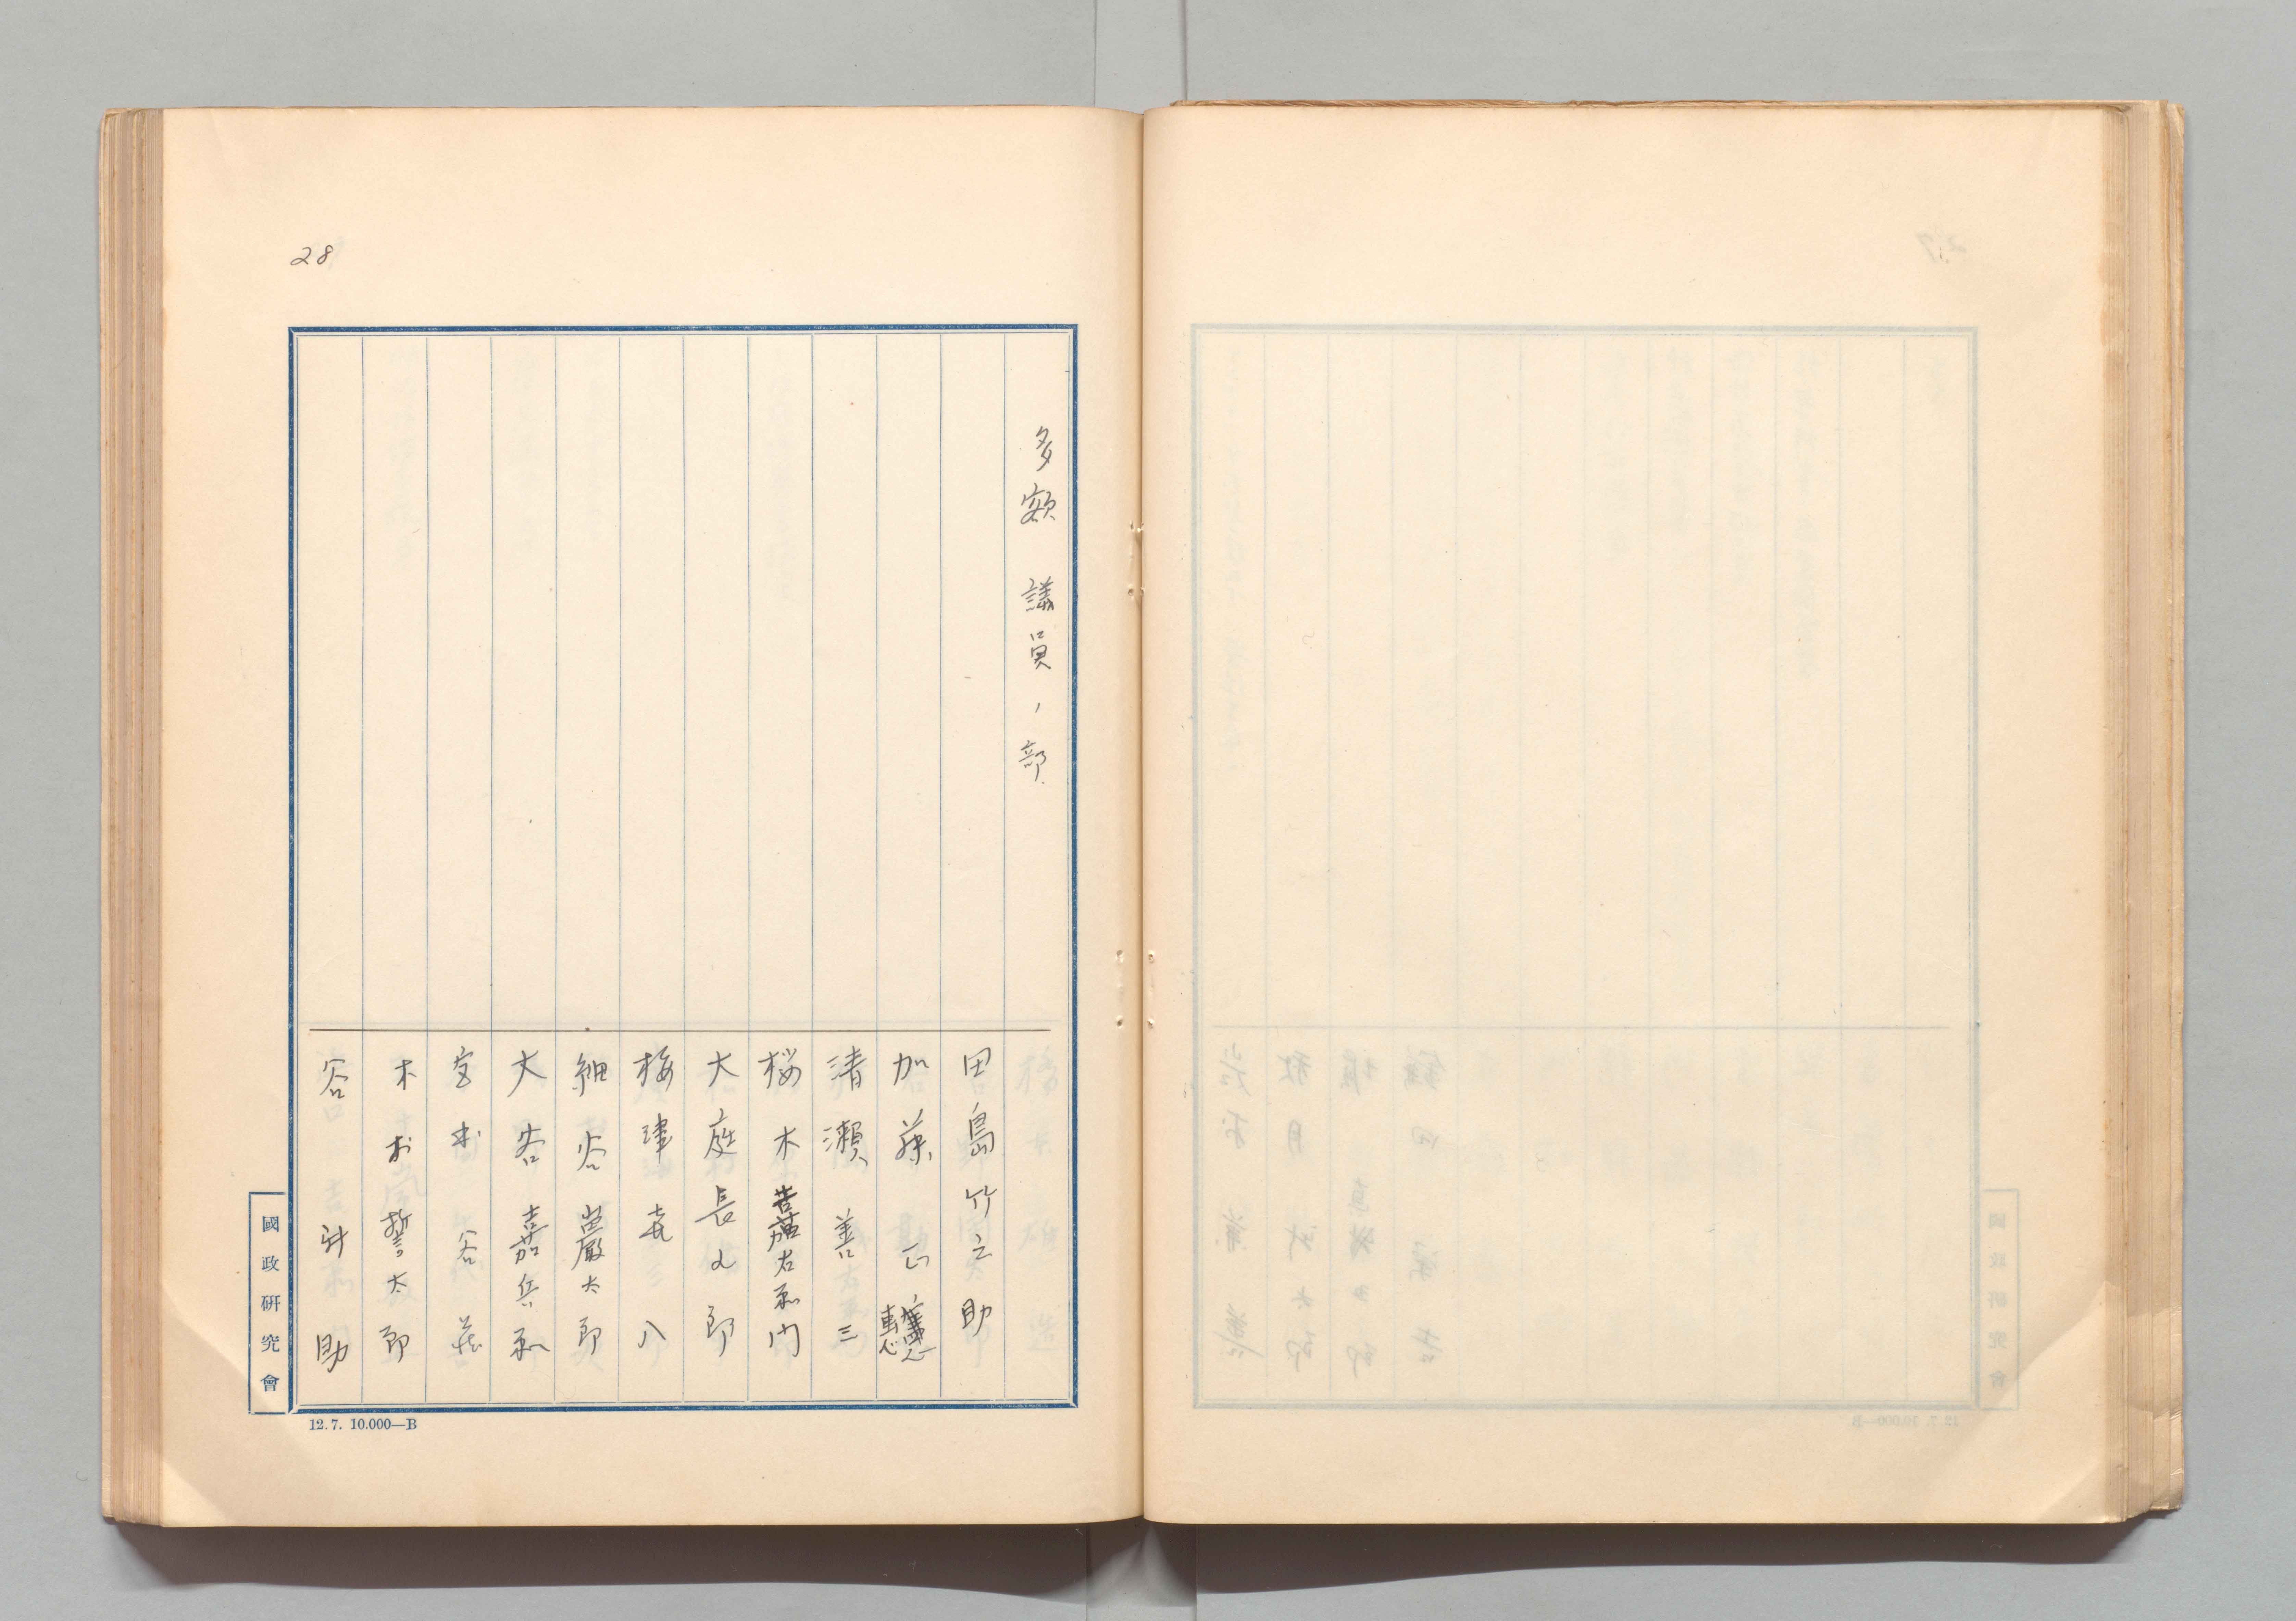 28
多額 議員ノ部
田島竹之助
加藤正
清瀬善三
桜木 右衛門
大庭長 郎
梅津㐂八
細谷巖太郎
大谷嘉兵衛
宮本谷蔵
木村誓太郎
谷新助
國政硏究會
12.7. 10.000—B